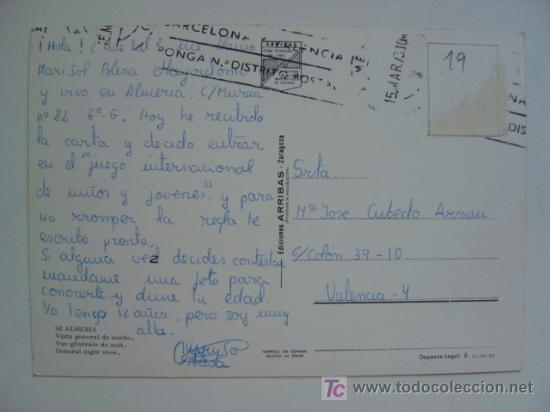 BARCELONA
PONGA N.º DISTRITO POSTAL
15.MAR.73.10M
19
ARRIBAS
¡Hola! ¿que tal? me llamo
MariSol Blesa
y vivo en Almeria. C/Murcia
nº 82 6º-G. Hoy he recibido
la carta y decido entrar
en el "juego internacional
de niños y jovenes" y para
no rromper la regla te
escrito pronto.
Si alguna vez decides contestar
mandame una foto para
conocerte y dime tu edad.
Yo tengo 12 años, pero soy muy
alta.
Ediciones ARRIBAS - Zaragoza
Srta.
Mª Jose Cubedo Arnau
C/Colón 39-10.
Valencia-4
52 ALMERIA
Vista general de noche.
Vue générale de nuit.
General night view.
IMPRESO EN ESPAÑA
PRINTED IN SPAIN
Depósito Legal: Z.
todocoleccion.net